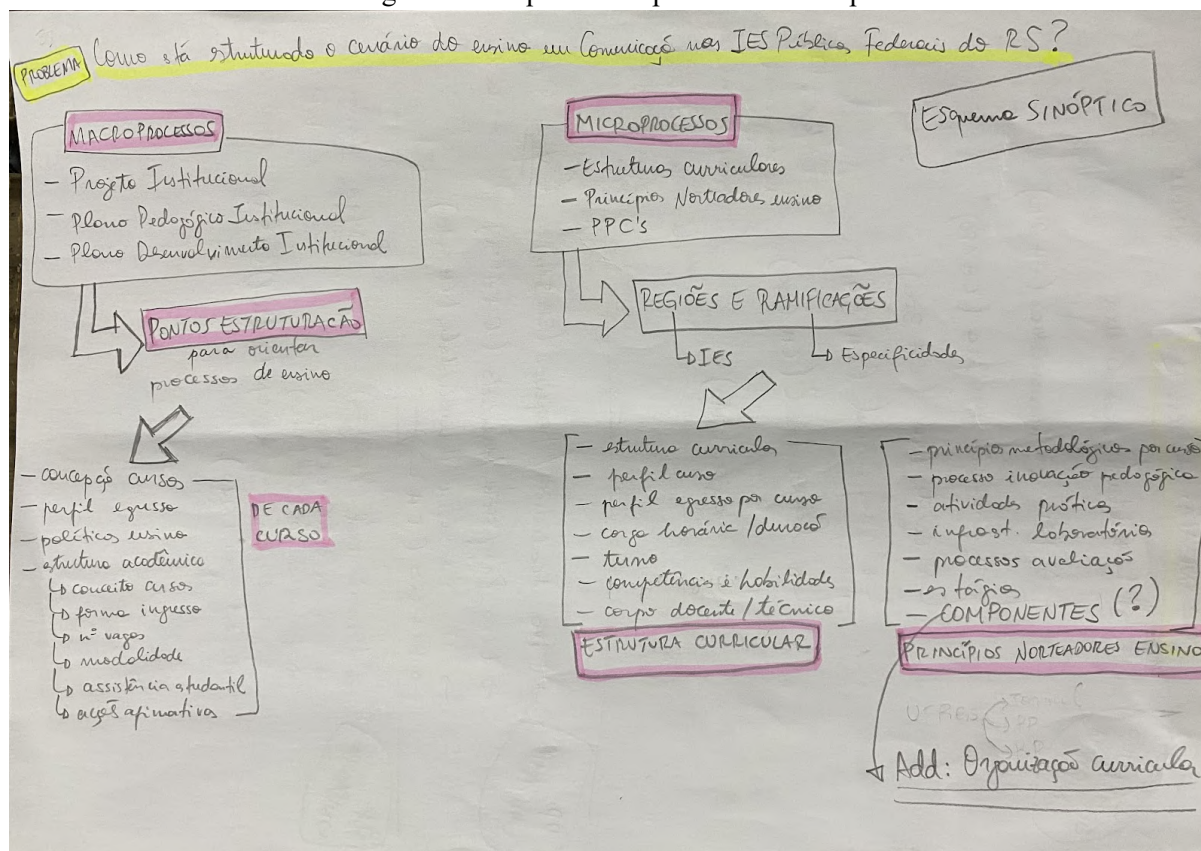 PROBLEMA Como stá estruturado o cenário do ensino em Comunicação nas IES Públicas Federais do RS?
Esquema SINÓPTICO
MACROPROCESSOS
- Projeto Institucional
- Plano Pedagógico Institucional
- Plano Desenvolvimento Institucional
PONTOS ESTRUTURAÇÃO
para orientar
processos de ensino
- concepção cursos
- perfil egresso
- políticas ensino
- estrutura acadêmica
conceito cursos
forma ingresso
nº vagas
modalidade
assistência estudantil
ações afirmativas
DE CADA
CURSO
MICROPROCESSOS
- Estruturas curriculares
- Princípios Norteadores ensino
- PPC's
REGIÕES E RAMIFICAÇÕES
IES
Especificidades
- estrutura curricular
- perfil curso
- perfil egresso por curso
- carga horária / duração
- turno
- competências e habilidades
- corpo docente / técnico
ESTRUTURA CURRICULAR
- princípios metodológicos por curso
- processo inovação pedagógica
- atividades práticas
- infraest. laboratórios
- processos avaliação
- estágios
- COMPONENTES (?)
PRINCÍPIOS NORTEADORES ENSINO
Add: Organização curricular